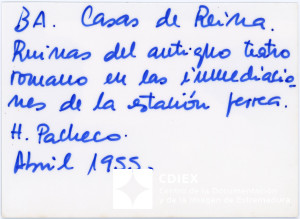 BA. Casas de Reina.
Ruinas del antiguo teatro
romano en las inmediacio-
nes de la estación ferrea.
H. Pacheco.
Abril 1955.
CDIEX